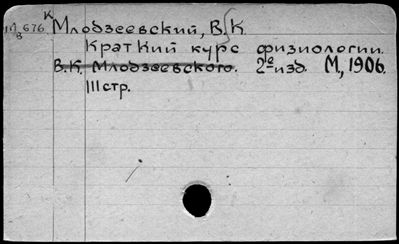 Млодзеевский, В.К
Краткий курс физиологии.
В.К. Млодзеевского. 2е изд. М., 1906.
111 стр.